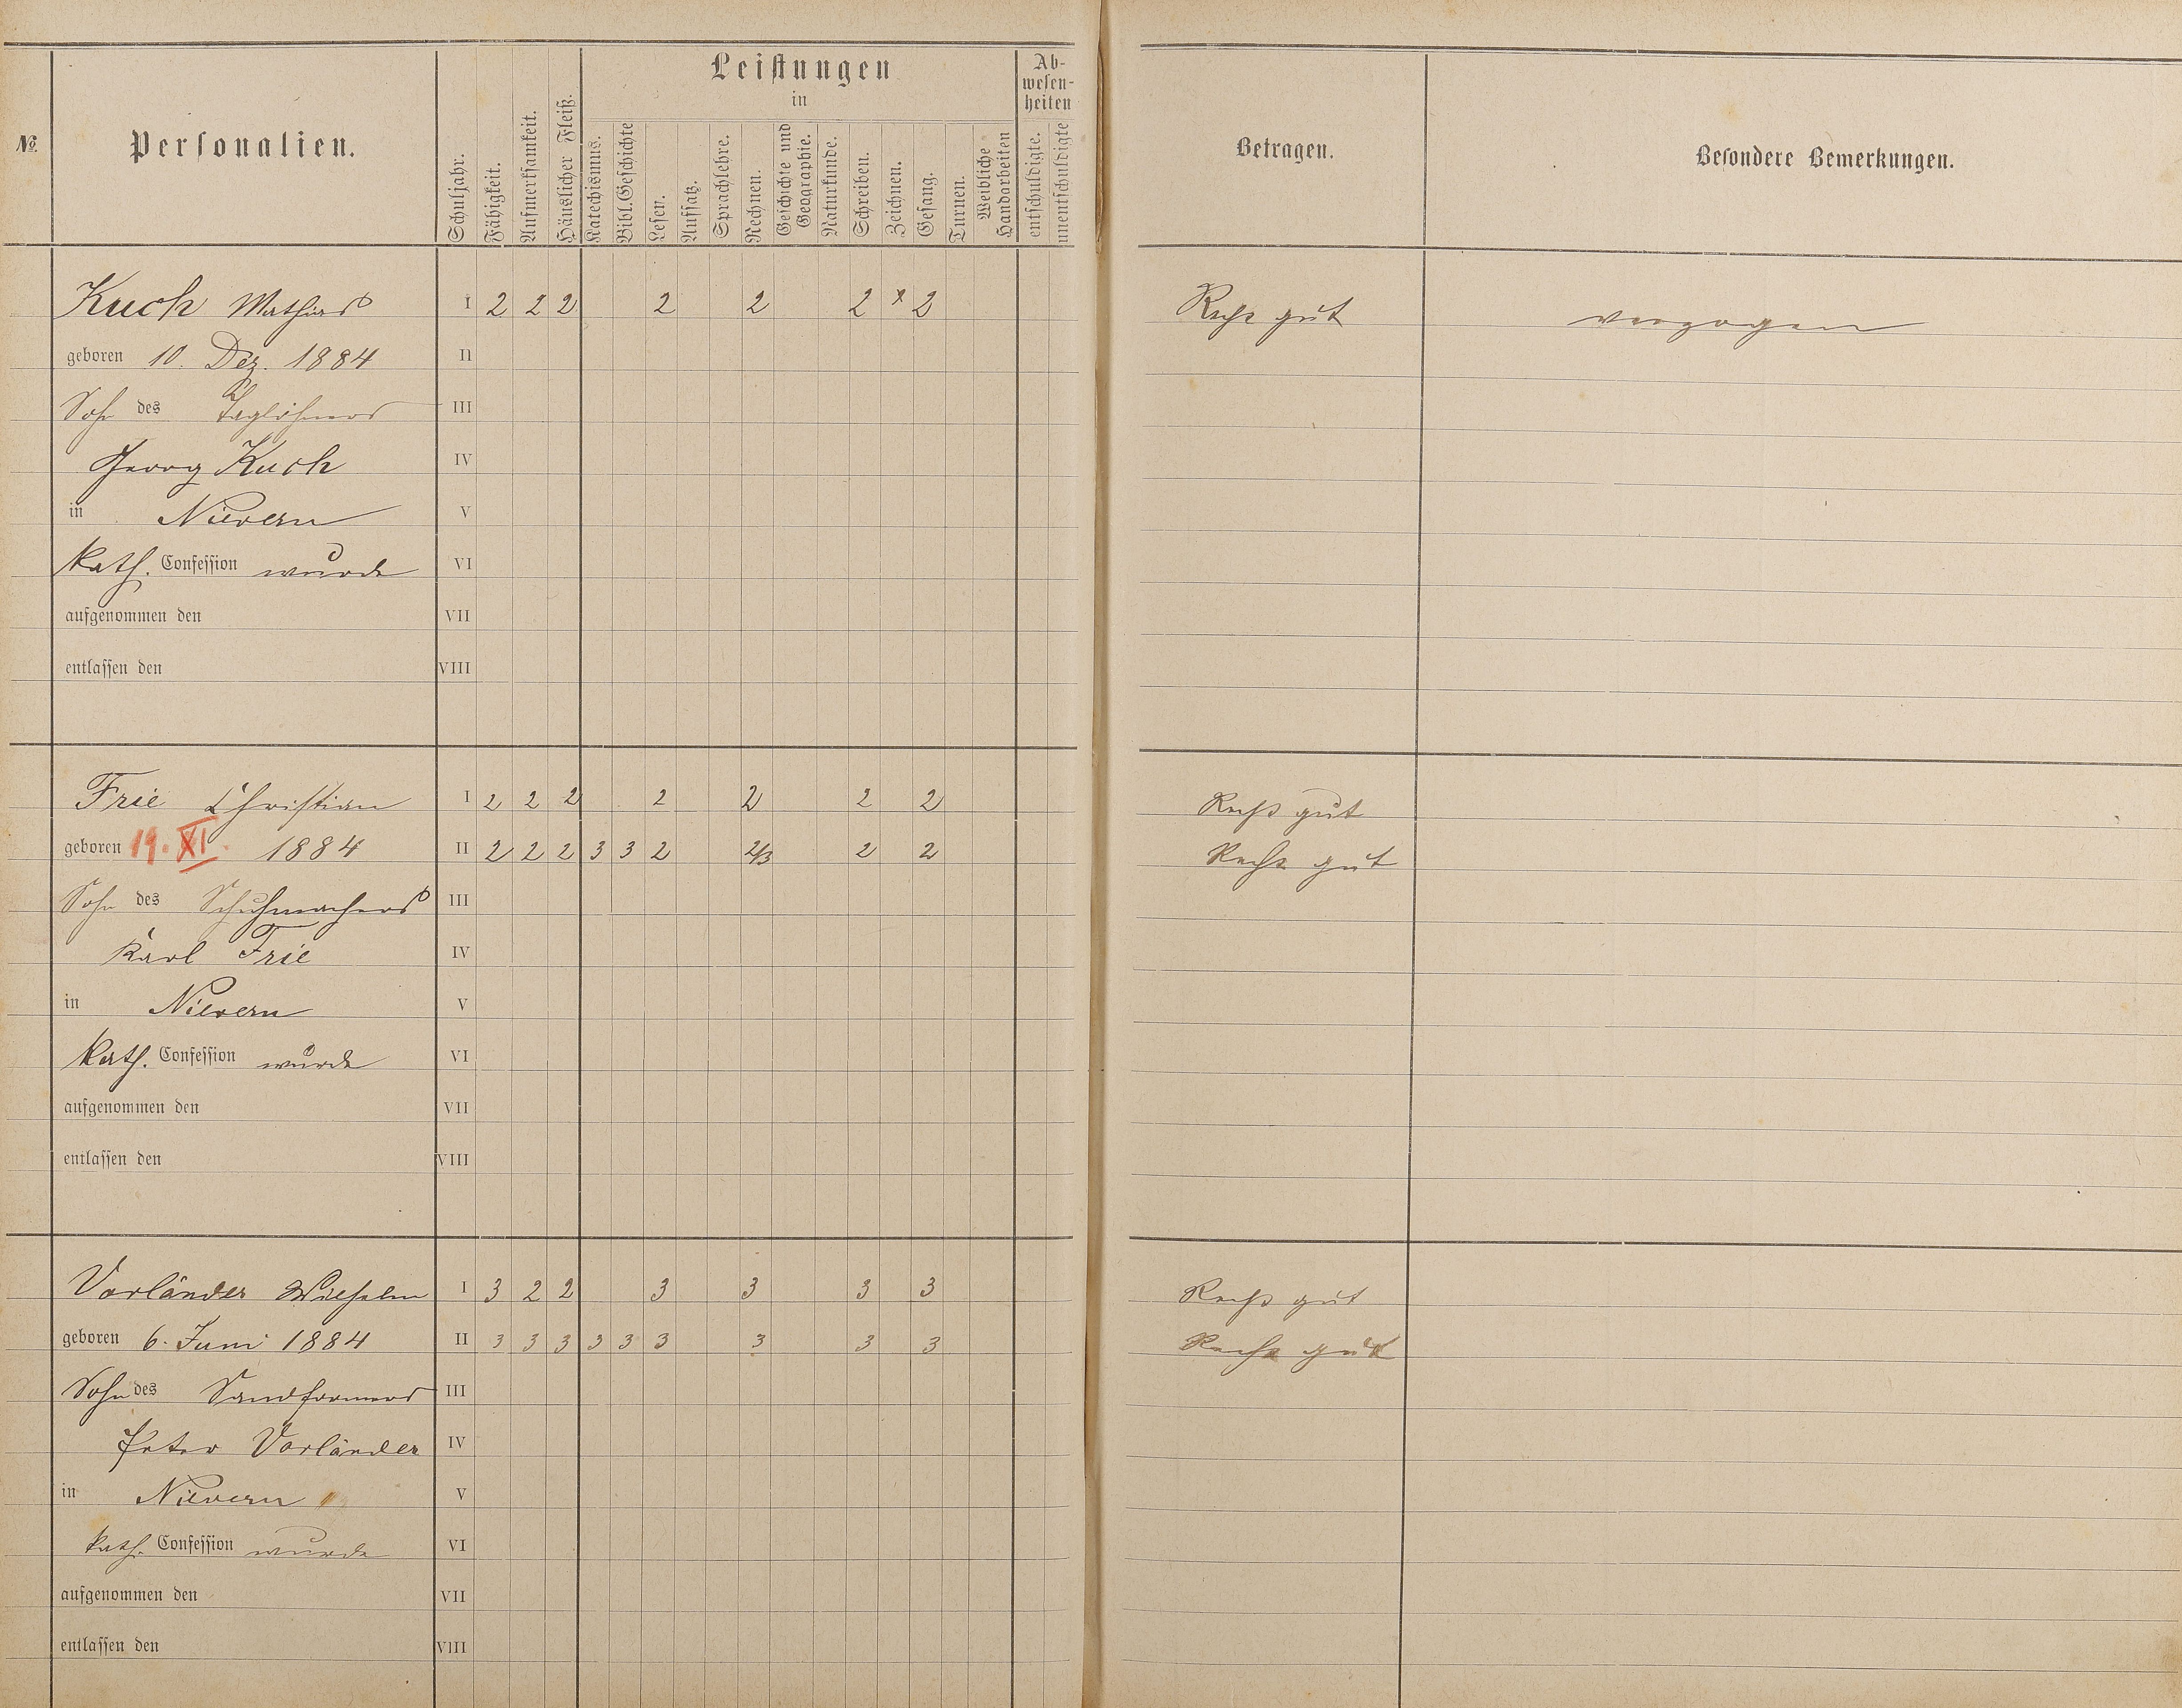 №
Personalien.
Schuljahr.
Fähigkeit.
Aufmerksamkeit.
Häuslicher Fleiß.
Leistungen
in
Katechismus.
Bibl. Geschichte
Lesen.
Aufsatz.
Sprachlehre.
Rechnen.
Geschichte und
Geographie.
Naturkunde.
Schreiben.
Zeichnen.
Gesang.
Turnen.
Weibliche
Handarbeiten
Ab-
wesen-
heiten
entschuldigte.
unentschuldigte
Betragen.
Besondere Bemerkungen.
Kuch Mathias I 2 2 2 2 2 2 x 2 Recht gut verzogen
geboren 10. Dez. 1884 II
Sohn des Taglöhners III
Georg Kuch IV
in Nievern V
Kath. Confession wurde VI
aufgenommen den VII
entlassen den VIII
Frie Christian I 2 2 2 2 2 2 2 Recht gut
geboren 19. XI. 1884 II 2 2 2 3 3 2 2/3 2 2 Recht gut
Sohn des Schuhmachers III
Karl Frie IV
in Nievern V
Kath. Confession wurde VI
aufgenommen den VII
entlassen den VIII
Vorländer Wilhelm I 3 2 2 3 3 3 3 Recht gut
geboren 6. Juni 1884 II 3 3 3 3 3 3 3 3 3 Recht gut
Sohn des Sandformers III
Peter Vorländer IV
in Nievern V
kath. Confession wurde VI
aufgenommen den VII
entlassen den VIII